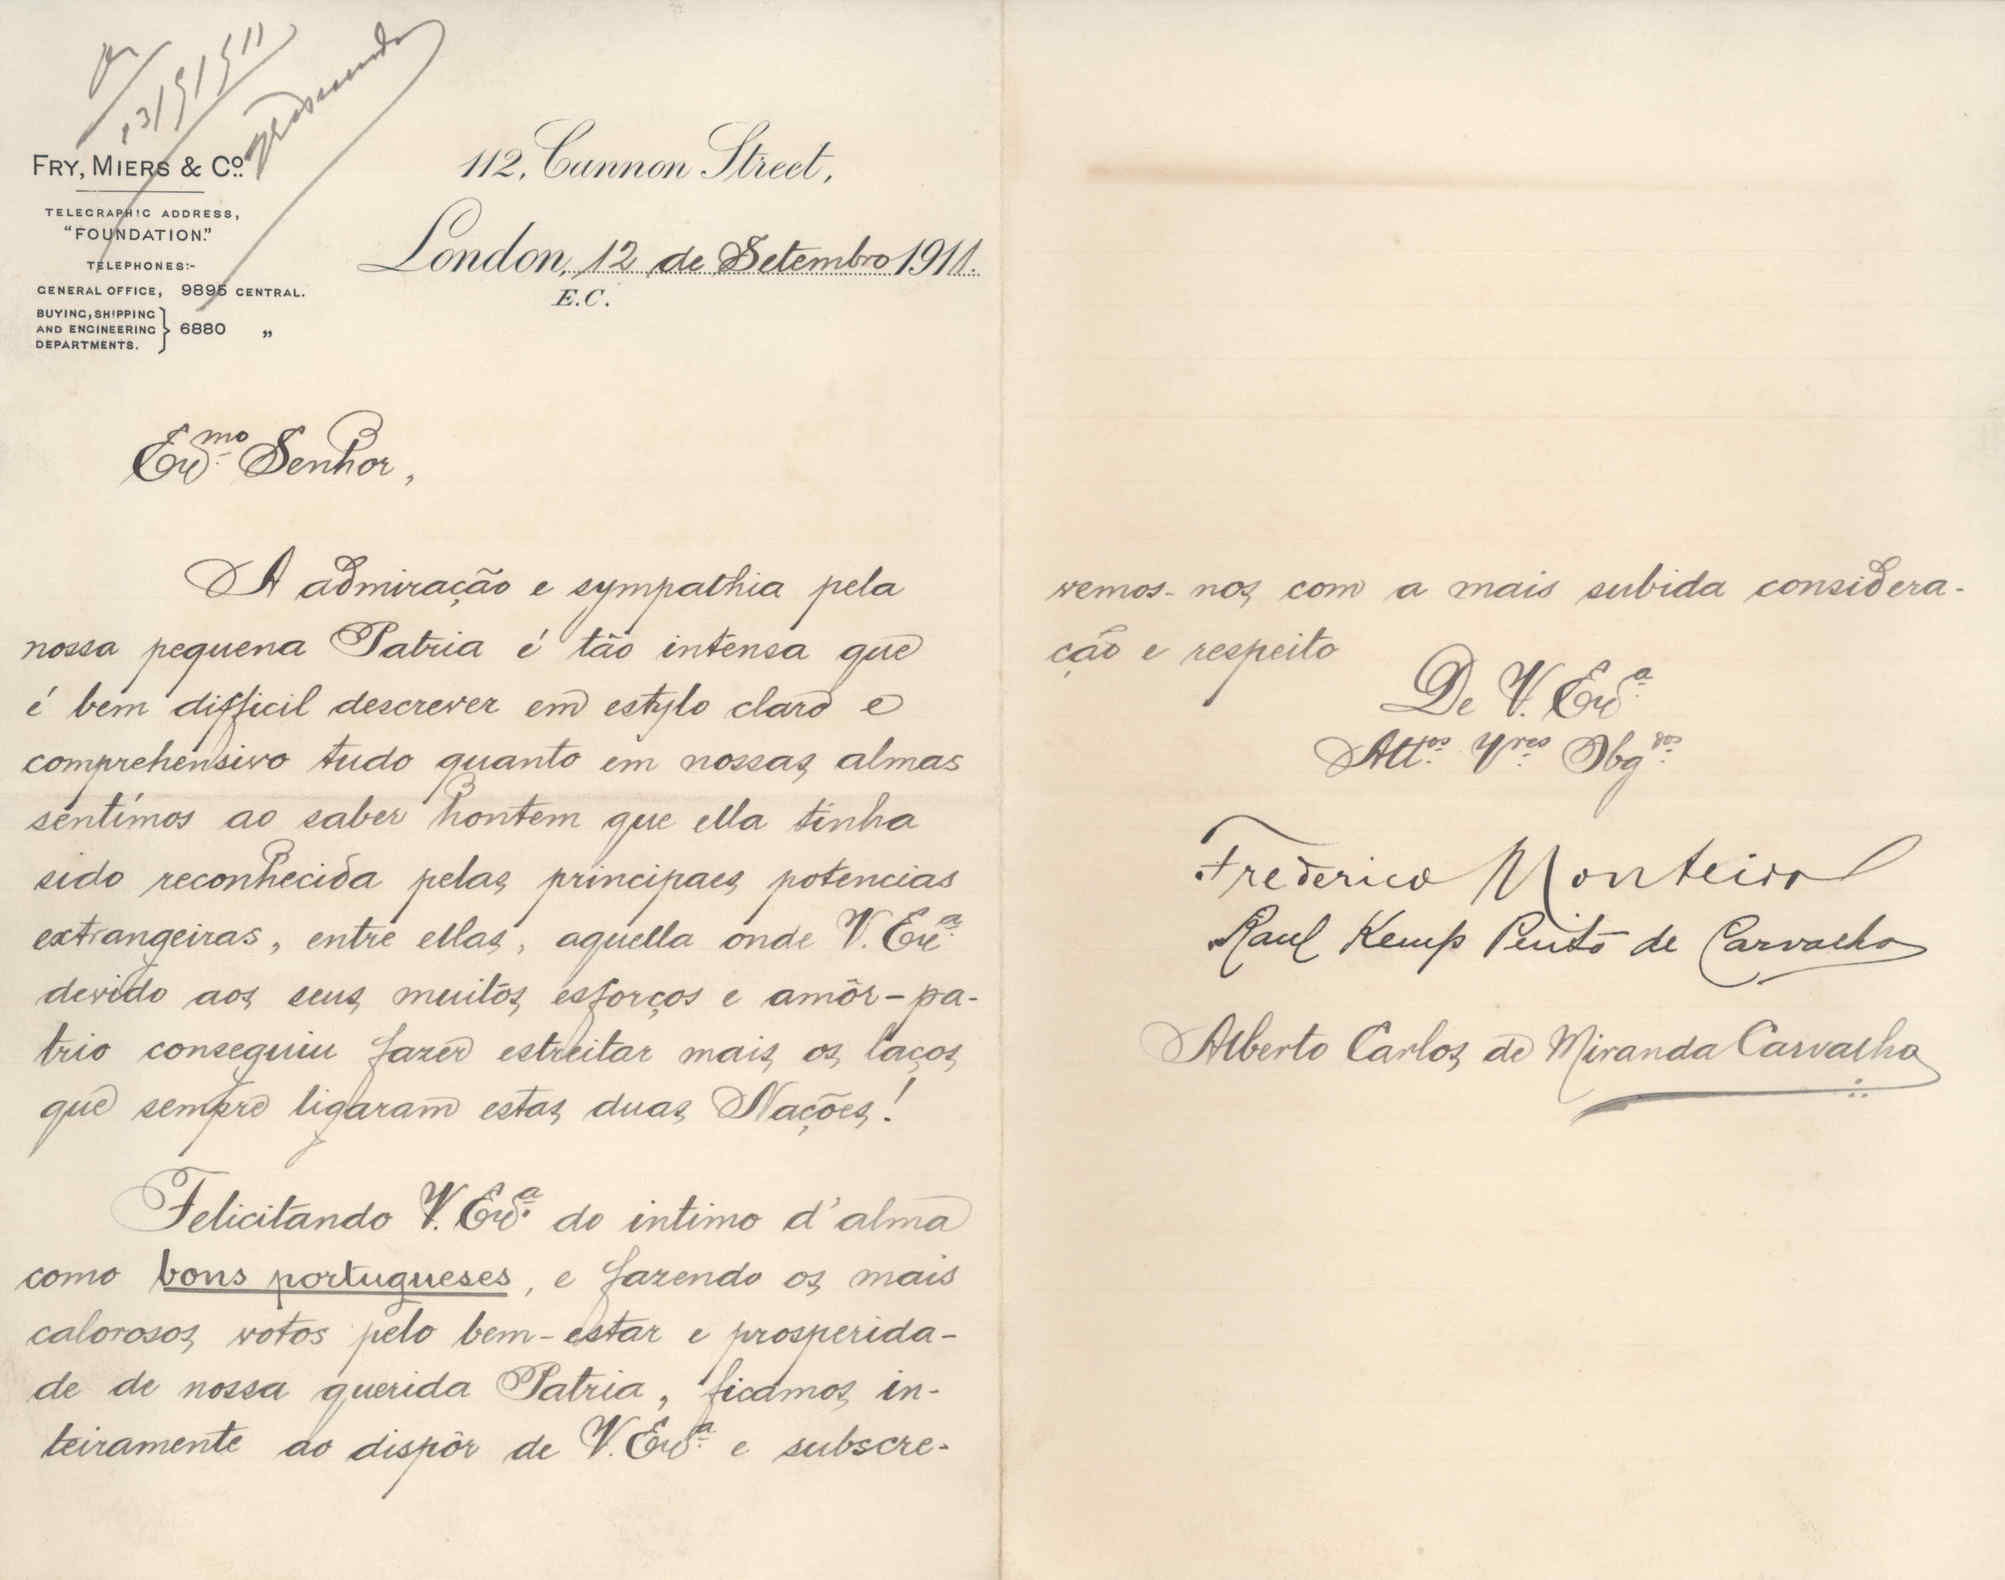 13/9/911
FRY, MIERS & Cº.
TELEGRAPHIC ADDRESS,
"FOUNDATION."
TELEPHONES:-
GENERAL OFFICE, 9895 CENTRAL.
BUYING, SHIPPING
AND ENGINEERING } 6880 „
DEPARTMENTS.
112, Cannon Street,
London, 12 de Setembro 1911.
E.C.
Exmo. Senhor,
A admiração e sympathia pela
nossa pequena Patria é tão intensa que
é bem difficil descrever em estylo claro e
comprehensivo tudo quanto em nossas almas
sentimos ao saber hontem que ella tinha
sido reconhecida pelas principaes potencias
extrangeiras, entre ellas, aquella onde V. Exa.
devido aos seus muitos esforços e amôr-pa-
trio conseguiu fazer estreitar mais os laços
que sempre ligaram estas duas Nações!
Felicitando V. Exa. do intimo d'alma
como bons portugueses, e fazendo os mais
calorosos votos pelo bem-estar e prosperida-
de de nossa querida Patria, ficamos in-
teiramente ao dispôr de V. Exa. e subscre-
vemos-nos com a mais subida considera-
ção e respeito
De V. Exa.
Attos. Vres. Obgdos.
Frederico Monteiro
Raul Kemp Pinto de Carvalho
Alberto Carlos de Miranda Carvalho